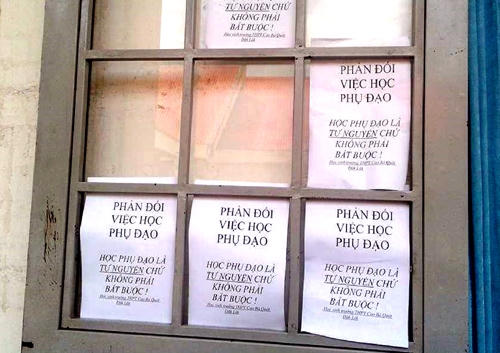 TỰ NGUYỆN CHỨ
KHÔNG PHẢI
BẮT BUỘC !
Học sinh trường THPT Cao Bá Quát
Đắk Lắk
PHẢN ĐỐI
VIỆC HỌC
PHỤ ĐẠO
HỌC PHỤ ĐẠO LÀ
TỰ NGUYỆN CHỨ
KHÔNG PHẢI
BẮT BUỘC !
Học sinh trường THPT Cao Bá Quát
Đắk Lắk
PHẢN ĐỐI
VIỆC HỌC
PHỤ ĐẠO
HỌC PHỤ ĐẠO LÀ
TỰ NGUYỆN CHỨ
KHÔNG PHẢI
BẮT BUỘC !
Học sinh trường THPT Cao Bá Quát
Đắk Lắk
PHẢN ĐỐI
VIỆC HỌC
PHỤ ĐẠO
HỌC PHỤ ĐẠO LÀ
TỰ NGUYỆN CHỨ
KHÔNG PHẢI
BẮT BUỘC !
Học sinh trường THPT Cao Bá Quát
Đắk Lắk
PHẢN ĐỐI
VIỆC HỌC
PHỤ ĐẠO
HỌC PHỤ ĐẠO LÀ
TỰ NGUYỆN CHỨ
KHÔNG PHẢI
BẮT BUỘC !
Học sinh trường THPT Cao Bá Quát
Đắk Lắk